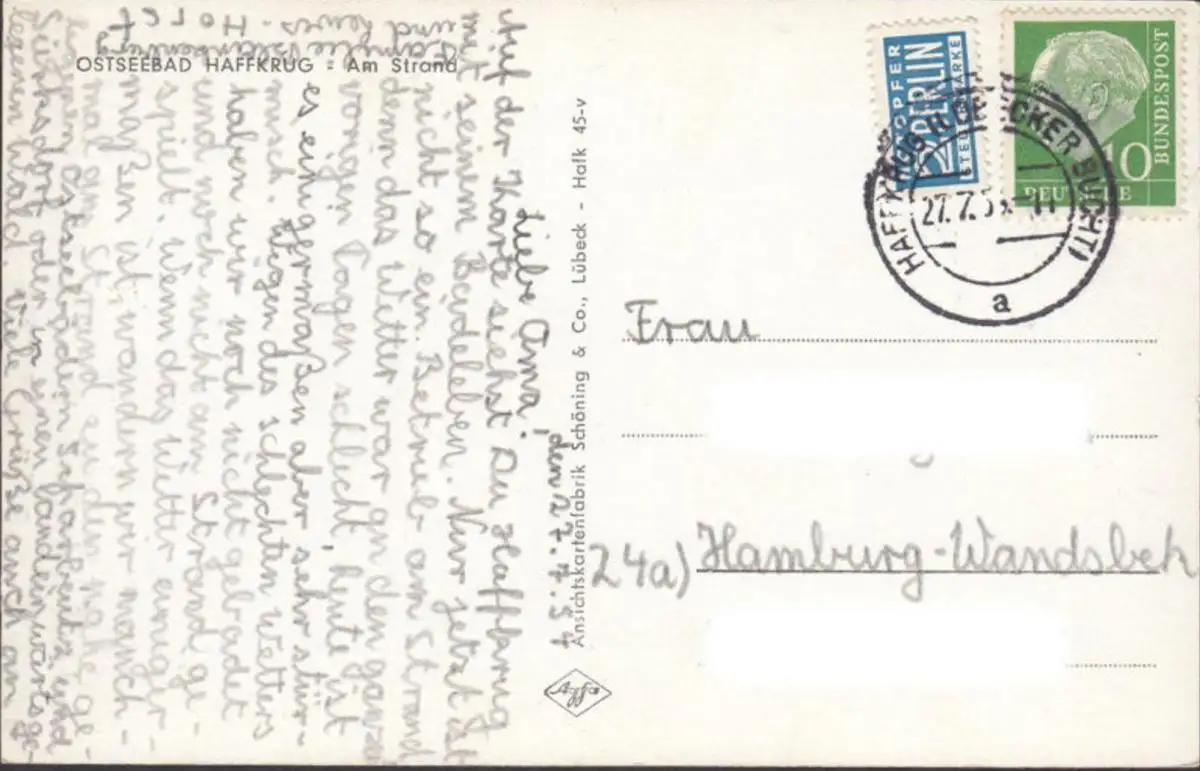 OSTSEEBAD HAFFKRUG - Am Strand
den 27.7.54
Liebe Oma!
Auf der Karte siehst Du Haffkrug
mit seinem Badeleben. Nur jetzt ist
nicht so ein Betrieb am Strand
denn das Wetter war an den ganzen
vorigen Tagen schlecht, heute ist
es einigermaßen aber sehr stür-
misch. Wegen des schlechten Wetters
haben wir noch nicht gebadet
und noch nicht am Strand ge-
spielt. Wenn das Wetter einiger-
maßen ist, wandern wir manch-
mal am Strand zu den nahe ge-
legenen Ostseebädern Scharbeutz und
Sierksdorf oder in einen landeinwärts ge-
legenen Wald. Viele Grüße auch an
Familie
und
Horst
Ansichtskartenfabrik Schöning & Co., Lübeck - Hafk 45-v
Agfa
NOTOPFER
2 BERLIN
STEUERMARKE
DEUTSCHE
BUNDESPOST
10
HAFFKRUG (LÜBECKER BUCHT)
27.7.5
a
Frau
24a) Hamburg-Wandsbek